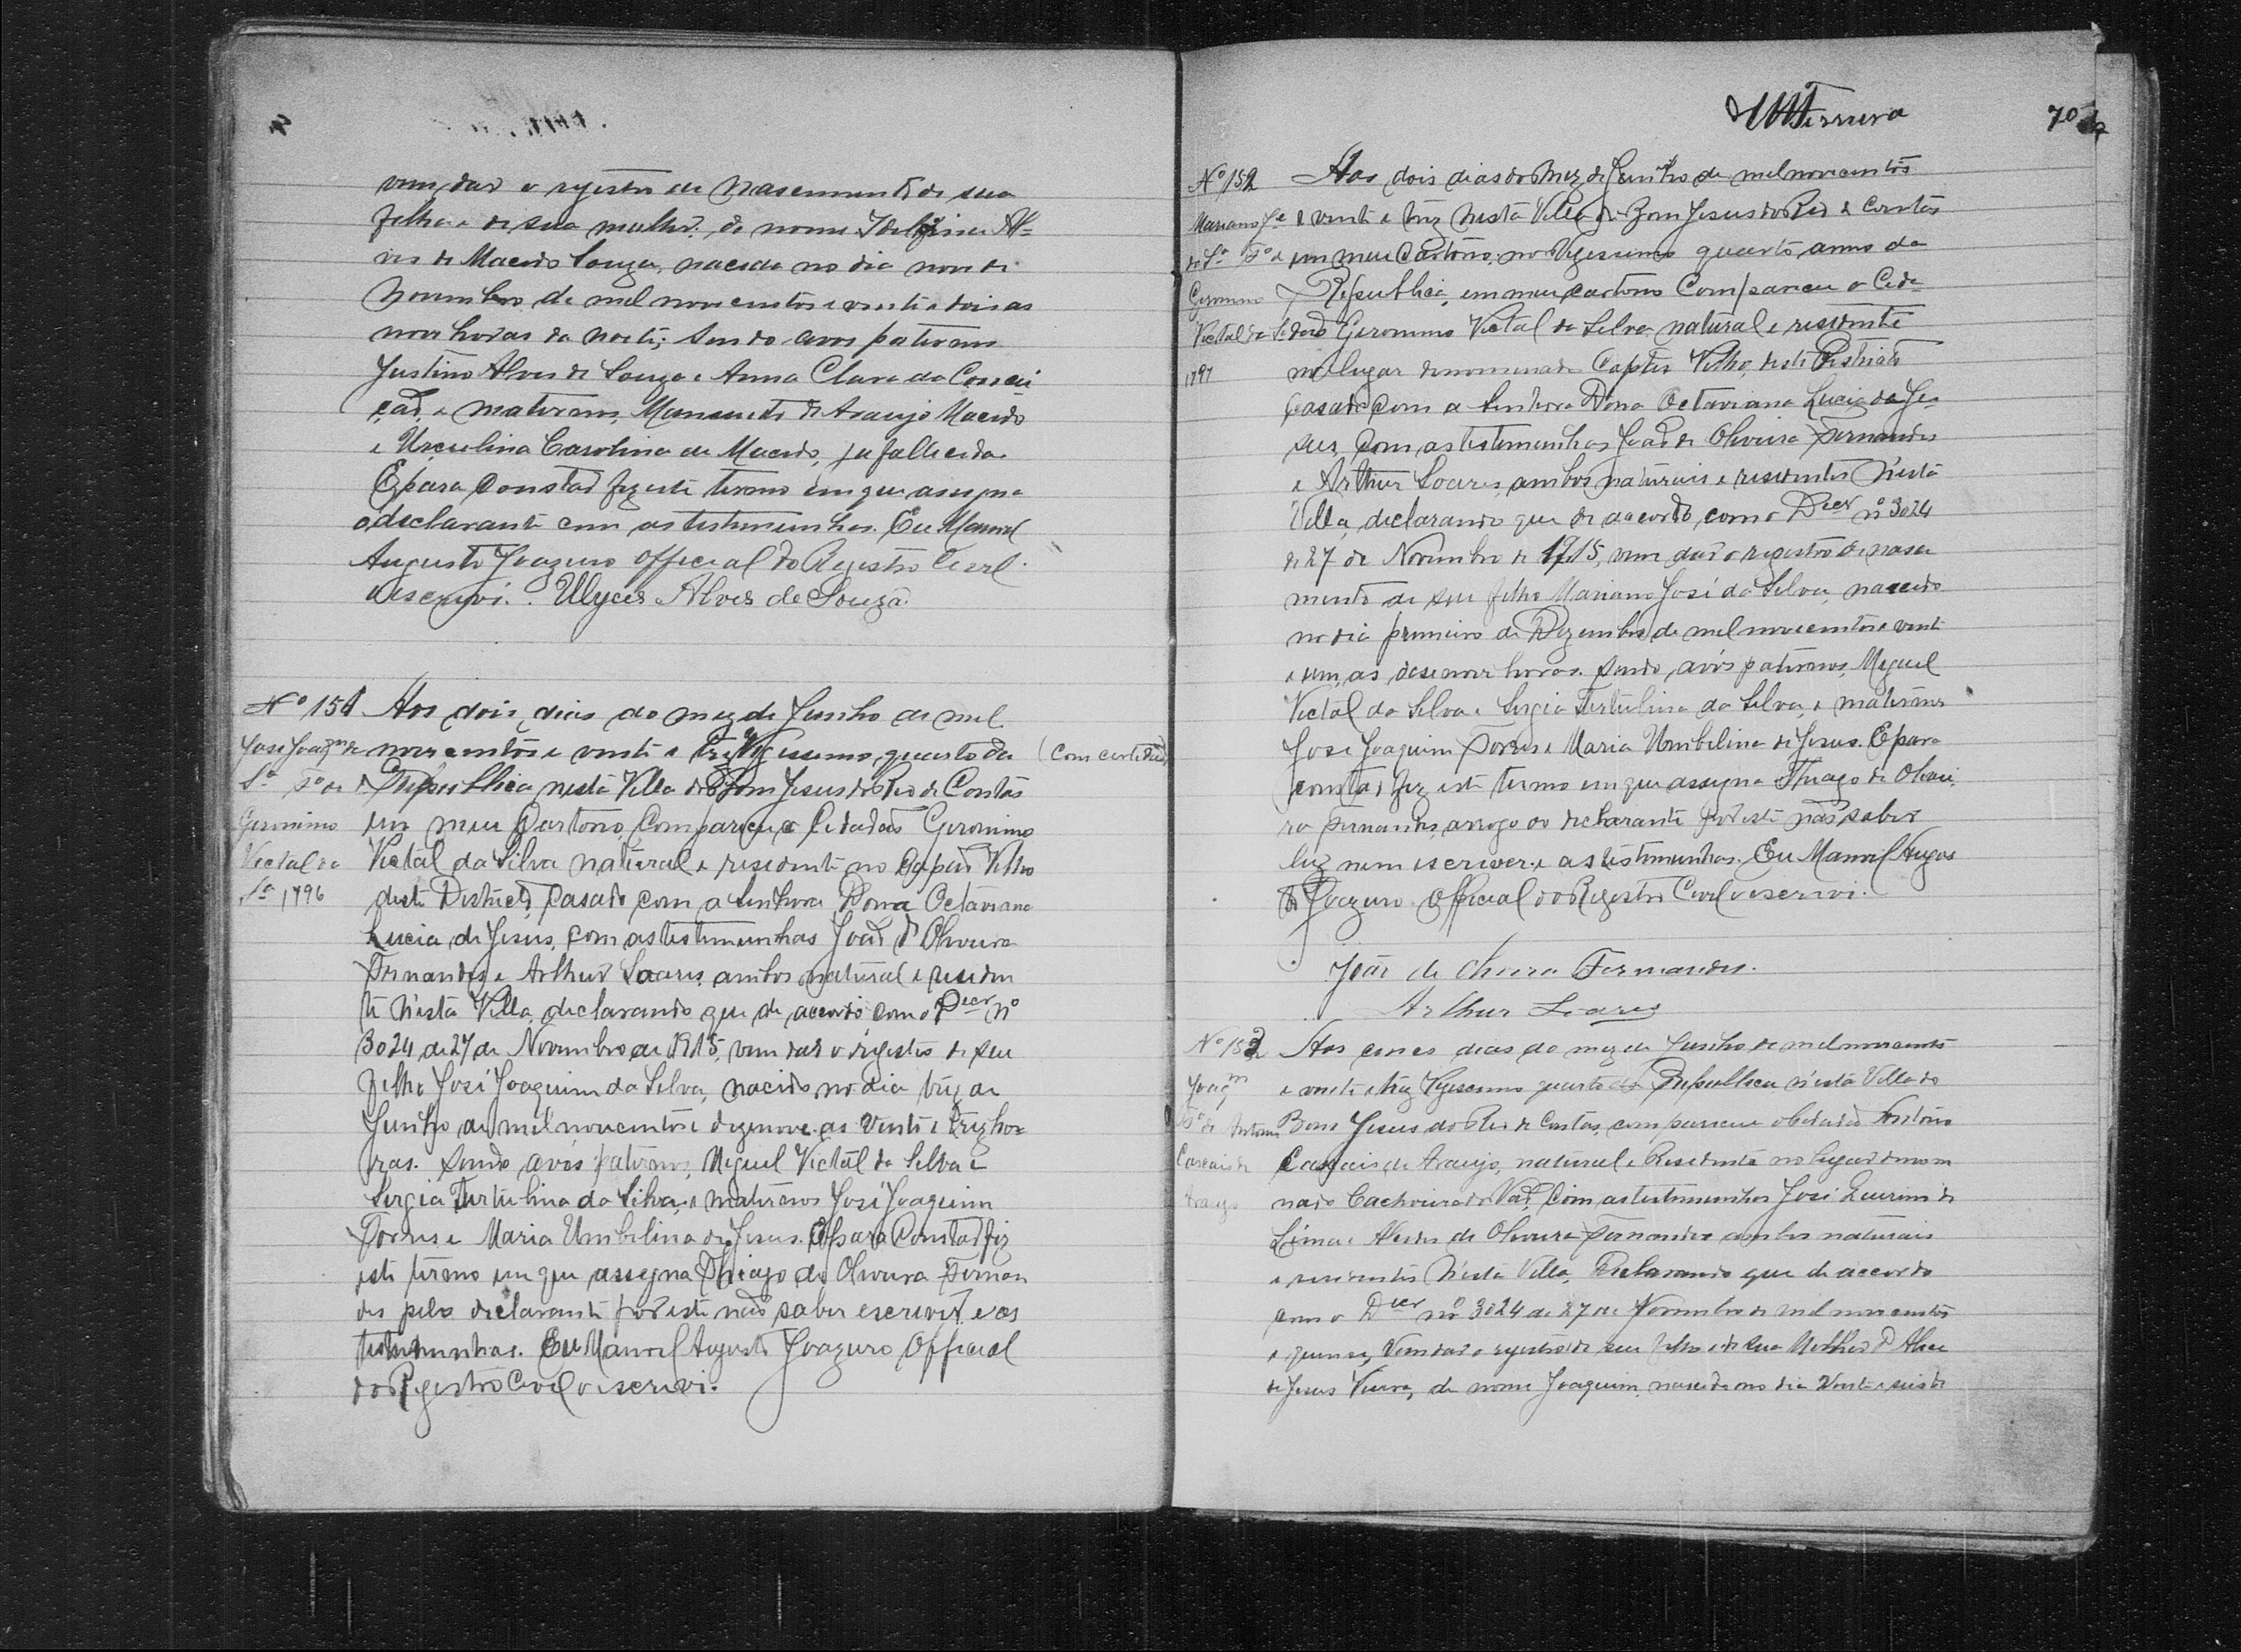 vem dar o registro de nascimento de sua
filha e de sua mulher, de nome Idalzina Al-
ves de Macedo Souza, nacida no dia nove de
Novembro de mil novecentos e vinte e dois as
nove horas da noite; sendo avos paternos
Justino Alves de Souza e Anna Clara da Concei
ção, e maternos, Mansueto de Araujo Macedo
e Urculina Carolina de Macedo, ja fallecida.
E para constar fiz este termo em que assigna
o declarante com as testemunhas. Eu Manoel
Augusto Joazeiro Official do Registro Civil
o escrevi. Ulyces Alves de Souza.
Nº 151 Aos dois dias do mez de Junho de mil
José Joaqm da novecentos e vinte e trez Vigessimo quarto da (com certidão)
Sª Fº de Republica nesta Villa do Bom Jesus do Rio de Contas
Geronimo em meu Cartorio, compareceu o Cidadão Geronimo
Victal da Victal da Silva natural e residente no Capão Velho
Sª 1796 deste Districto, Casado com a Senhora Dona Octaviana
Lucia de Jesus, com as testemunhas João d' Oliveira
Fernandes e Arthur Soares, ambos natural e residen
te n'esta Villa, declarando que de accordo com o Decr nº
3024 de 27 de Novembro de 1915, vem dar o registro de seu
filho José Joaquim da Silva, nacido no dia trez de
Junho de mil novecentos e dezenove as vinte e trez ho=
ras. Sendo avós paternos, Miguel Victal da Silva e
Sergia Turtulina da Silva, e maternos José Joaquim
Torres e Maria Umbelina de Jesus. E para Constar fiz
este termo em que assigna Thiago de Oliveira Fernan
des pelo declarante por este não saber escrever e as
testemunhas. Eu Manoel Augusto Joazeiro Official
do Registro Civil o escrevi.
Ferreira 70
Nº 152 Aos dois dias do Mez de Junho de mil novecentos
Mariano Jé e vinte e trez nesta Villa do Bom Jesus do Rio de Contas
da Sª Fº de em meu Cartorio, no Vigessimo quarto anno da
Geronimo Republica, em meu cartorio Compareceu o Cida-
Victal da Sª dão Geronimo Victal da Silva natural e residente
1797 no lugar denominado Capão Velho, deste Districto
Casado com a Senhora Dona Octaviana Lucia de Je-
sus, com as testemunhas João de Oliveira Fernandes
e Arthur Soares, ambos naturais e residentes n'esta
Villa, declarando que de accordo com o Decr nº 3024
de 27 de Novembro de 1915, vem dar o registro de nasci
mento de seu filho Mariano José da Silva, nacido
no dia primeiro de Dezembro de mil novecentos e vinte
e um, as desenove horas. Sendo, avós paternos, Miguel
Victal da Silva e Sergia Turtulina da Silva, e maternos
José Joaquim Torres e Maria Umbelina de Jesus. E para
constar fiz este termo em que assigna Thiago de Olivei
ra Fernandes, arrogo do declarante por este não saber
ler nem escrever e as testemunhas. Eu Manoel Augus
to Joazeiro Official do Registro Civil o escrevi.
João de Oliveira Fernandes.
Arthur Soares
Nº 153 Aos cinco dias do mez de Junho de mil novecentos
Joaqm e vinte e trez Vigessimo quarto da Republica n'esta Villa do
Fº de Antonio Bom Jesus do Rio de Contas, compareceu o Cidadão Antonio
Cascais de Cascais de Araujo, natural e Residente no lugar denomi
Araujo nado Cachoeira do Váo, com as testemunhas José Quirino de
Lima e Alcides de Oliveira Fernandes ambos naturais
e residentes n'esta Villa, Declarando que de accordo
com o Decr nº 3024 de 27 de Novembro de mil novecentos
e quinze, vem dar o registro de seu filho e de sua Mulher D
de Jesus Vieira, de nome Joaquim, nascido no dia Vinte e seis de